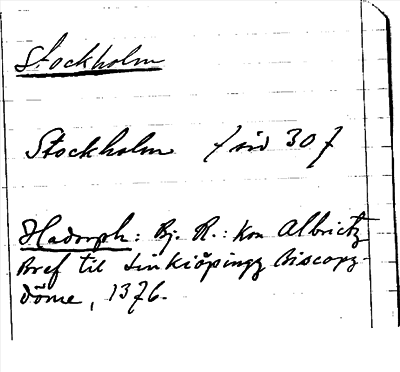 Stockholm
Stockholm / sid 307
Hadorph: Bj. R.: Kon Albrictz
Bref til Linkiöpingz Biscopz-
döme, 1376.